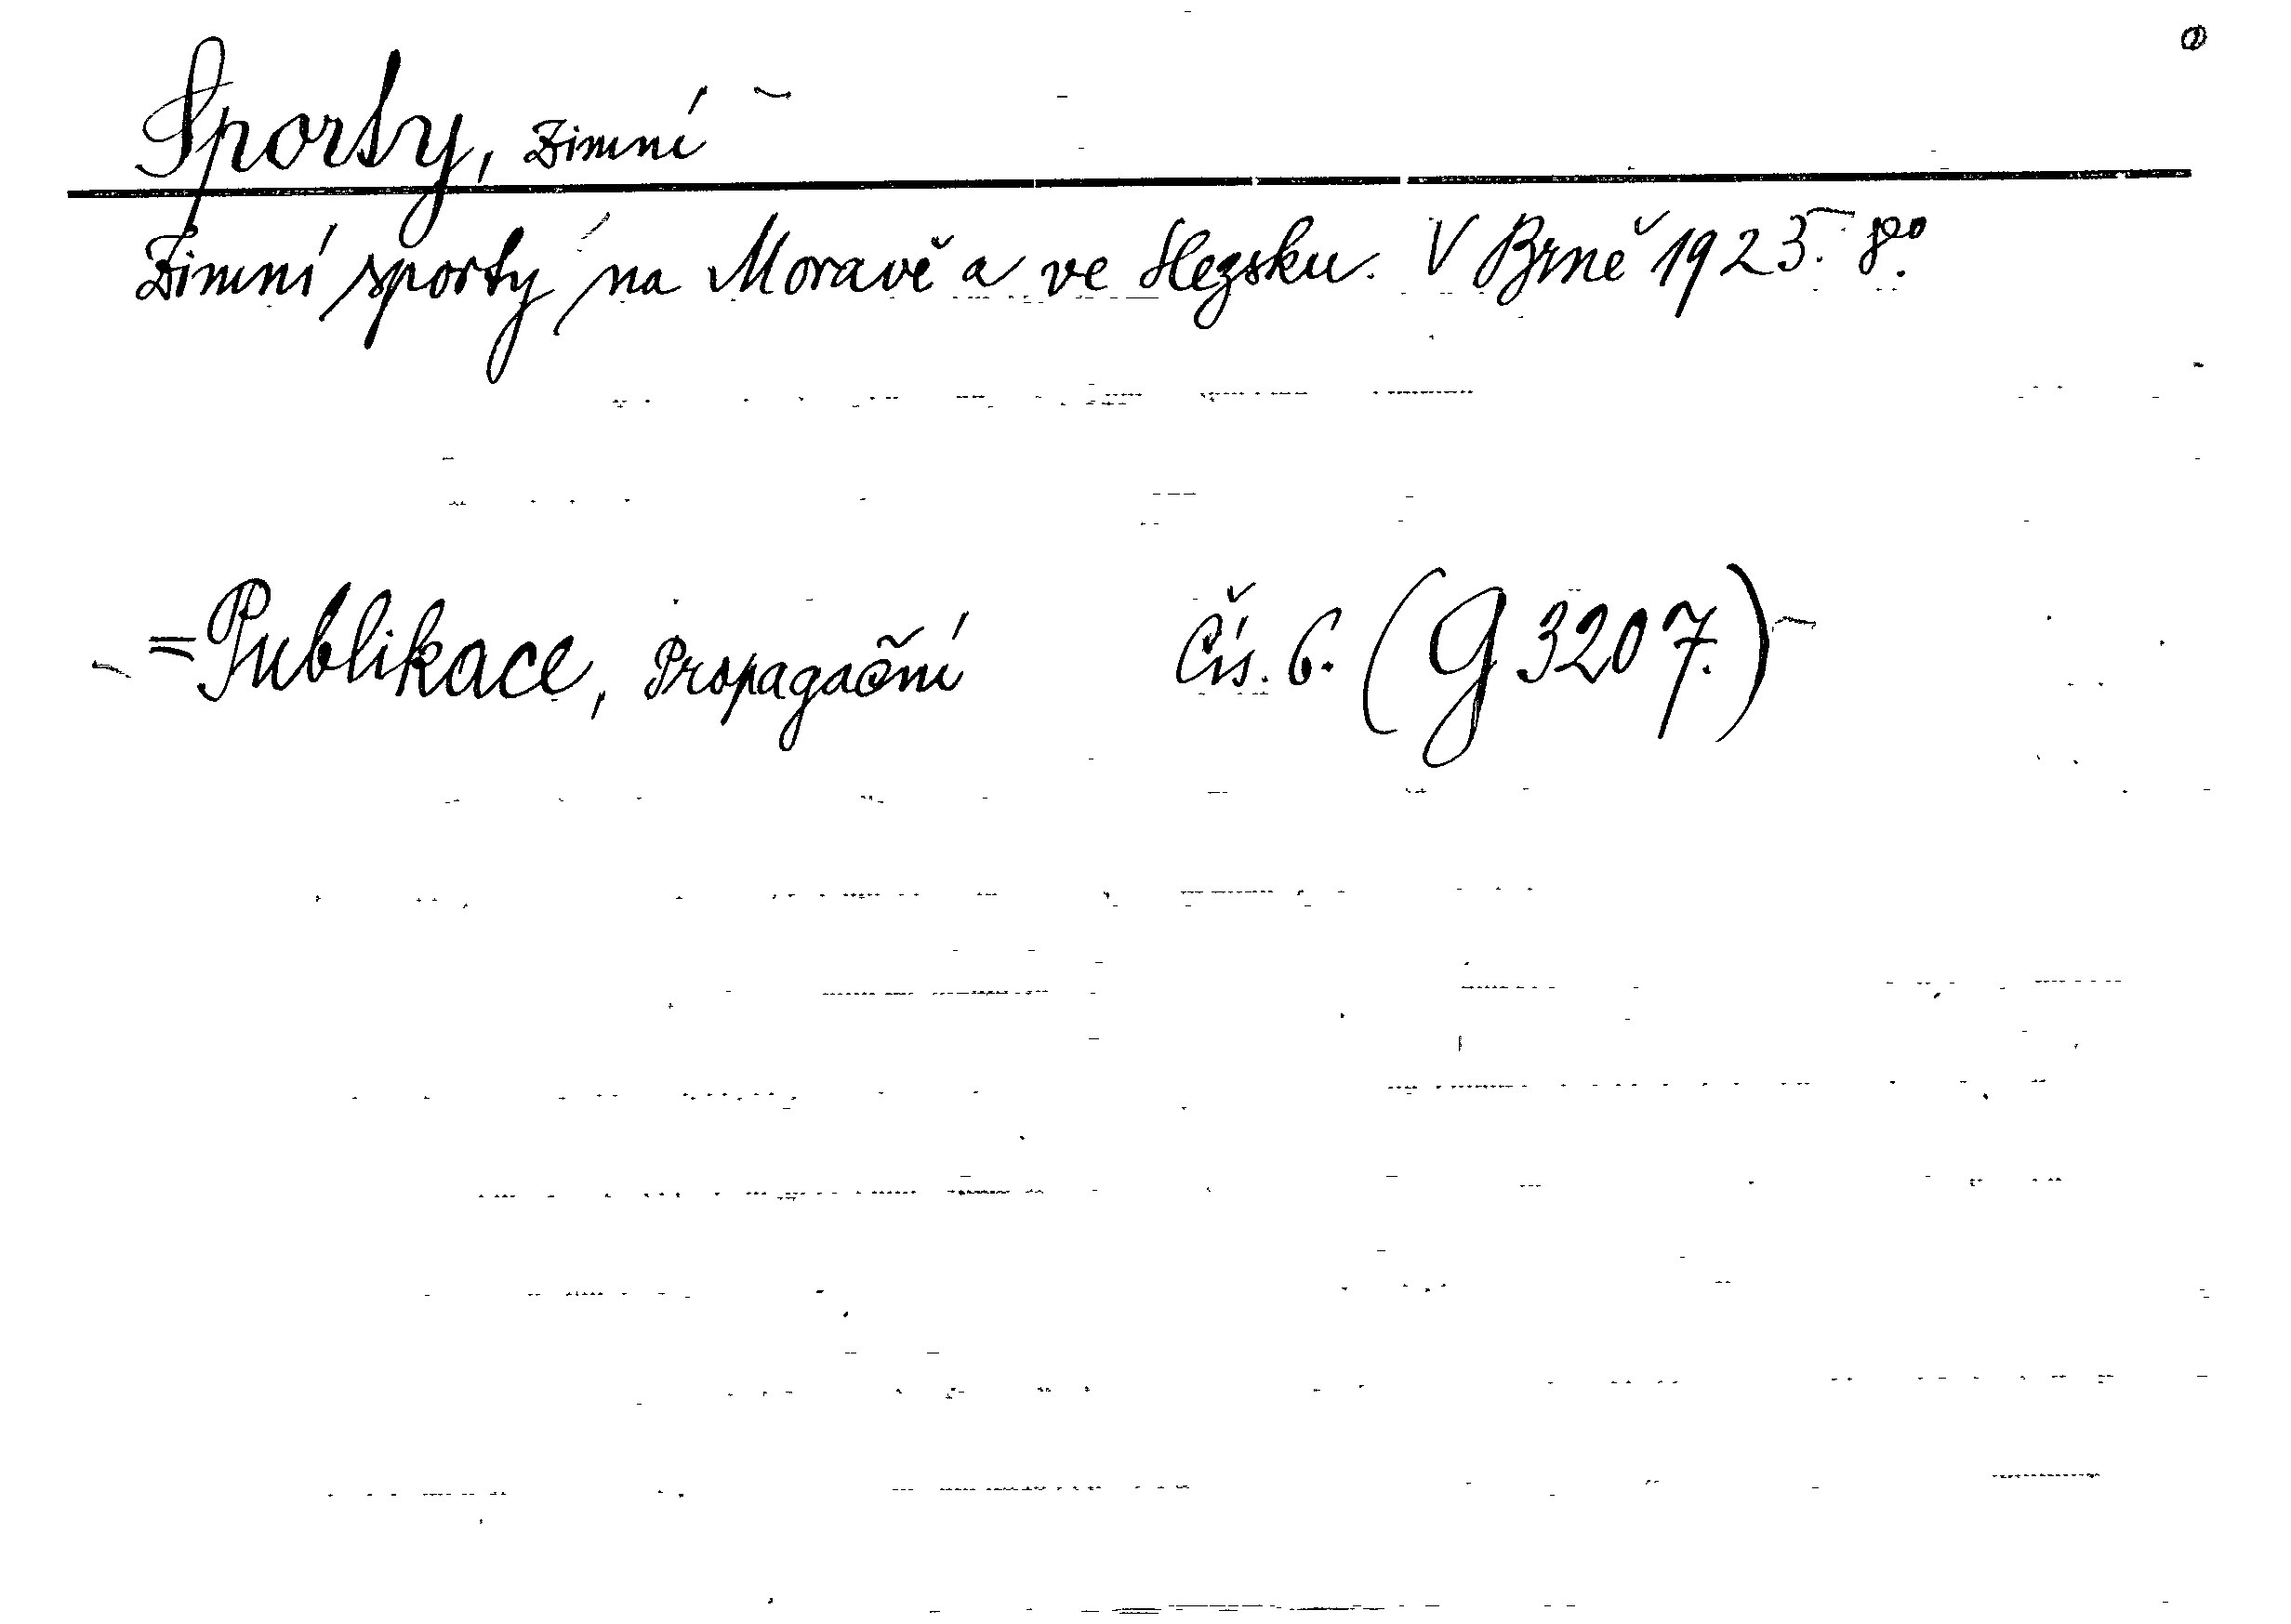 Sporty, zimní
Zimní sporty na Moravě a ve Slezsku. V Brně 1925. 8°.
=Publikace, Propagační Čís. 6. (G 3207.)